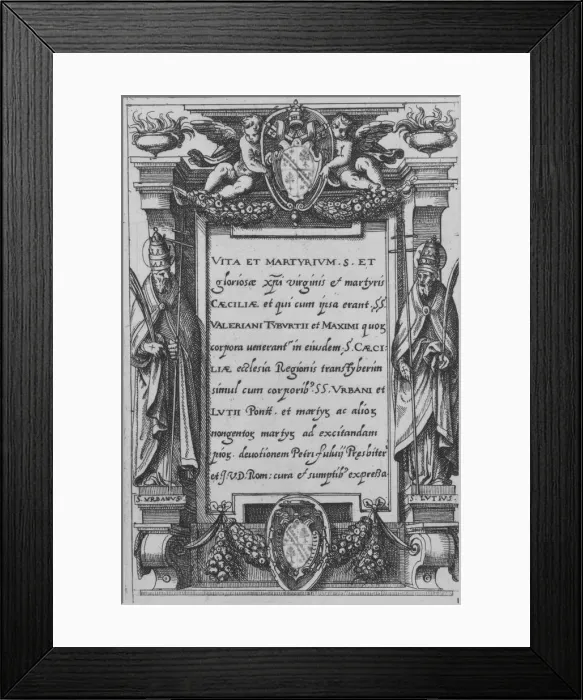 VITA ET MARTYRIVM . S . ET
gloriosæ xp̄i virginis et martyris
CÆCILIÆ et qui cum ipsa erant, SS.
VALERIANI TYBVRTII et MAXIMI quoꝝ
corpora uenerantʳ in eiusdem S. CÆCI-
LIÆ ecclesia Regionis transtyberim
simul cum corporibꝰ SS. VRBANI et
LVTII Pontt. et martyꝝ ac alioꝝ
nongentoꝝ martyꝝ ad excitandam
pioꝝ. deuotionem Petri fuluij Presbiterʳ
et J.V.D. Rom: cura et sumptibꝰ expressa
S. VRBANVS
S. LVTIVS.
1